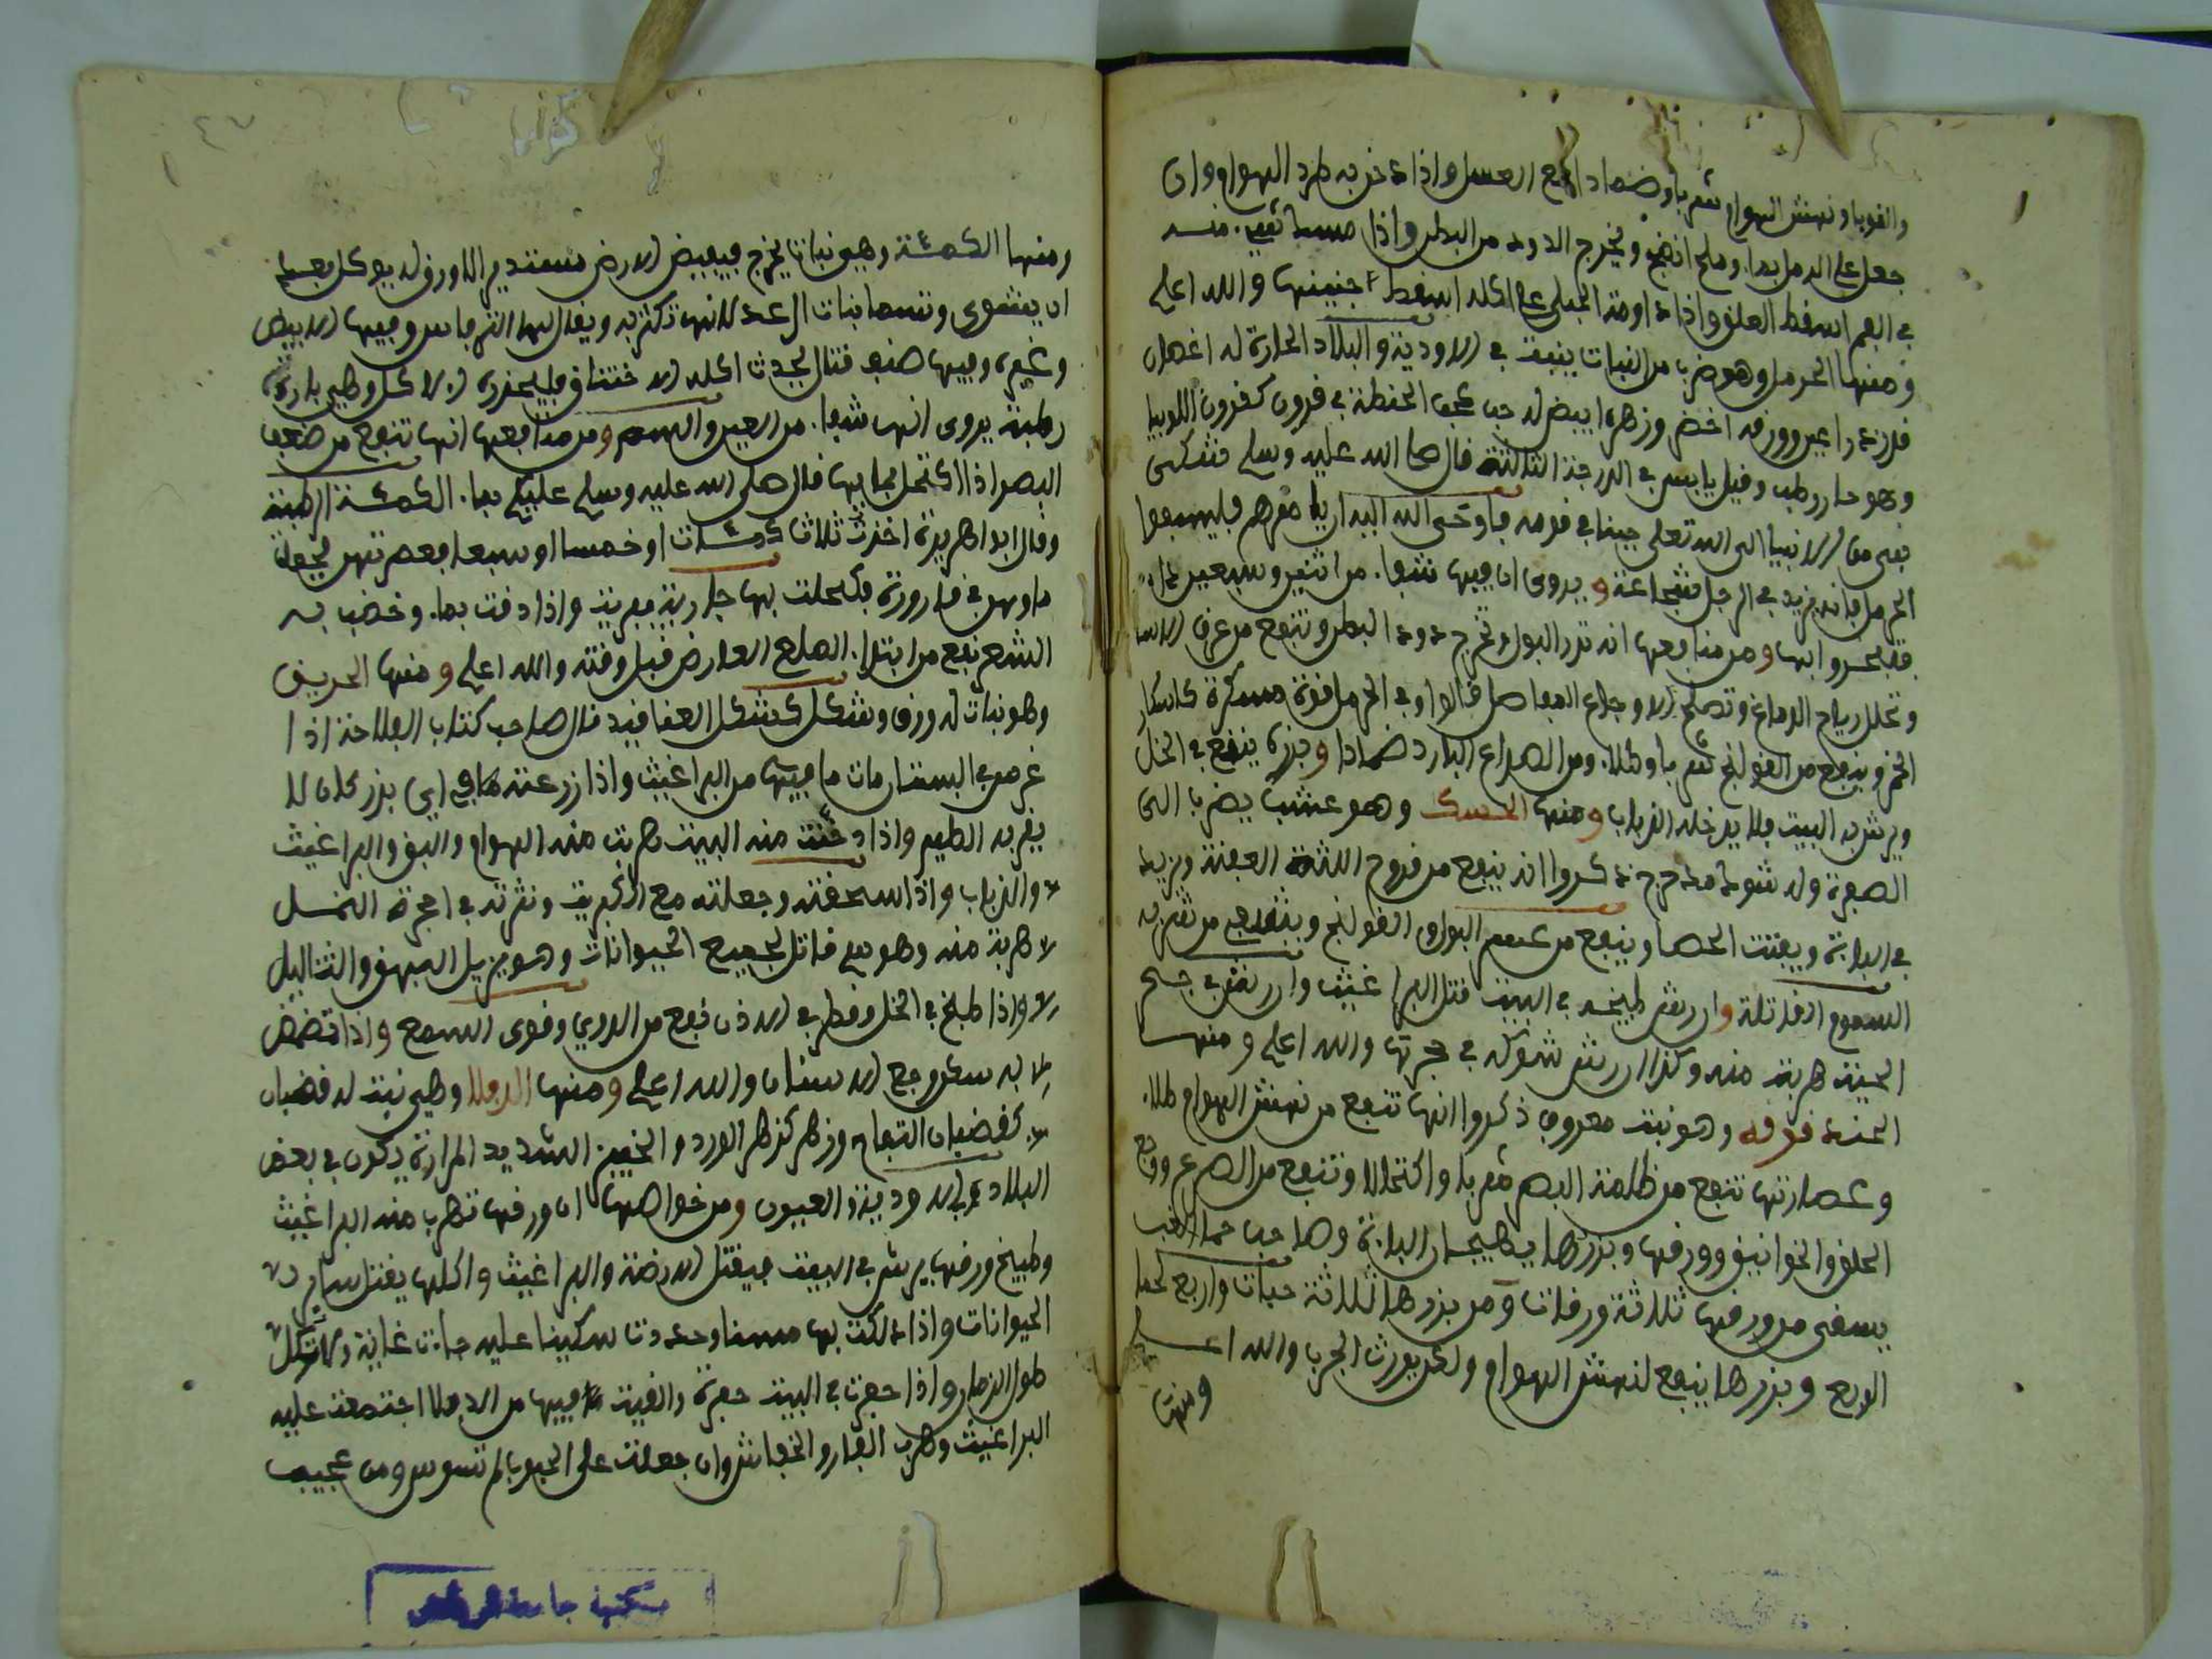 والقوبا ونهش الهوام شربا وضمادا مع العسل واذا دخن به طرد الهوام وان
جعل على الدمل بماء وملح انضجه ويخرج الدود من البطن واذا
في الفم اسقط العلق واذا داومت الحبلى على اكله اسقط اجنينها والله اعلم
ومنها الحرمل وهو ضرب من النبات ينبت في الاودية والبلاد الحارة له اغصان
قلار ذراعين وورقه اخضر وزهره ابيض له حب كحب الحنطة في قرون كقرون اللوبيا
وهو حار رطب وقيل يابس في الدرجة الثالثة قال صلى الله عليه وسلم شكى
نبي من الانبيا الى الله تعلى جبنا في قومه فاوحى الله اليه ان يامرهم فليسفوا
الحرمل فانه يزيد في الرجل شجاعة ويروى ان فيها شفاء من اثنين وسبعين داء
ومن منافعها انه تدر البول وتخرج دود البطن وتنفع من عرق النسا
وتحلل رياح الدماغ وتصلح الاوجاع المفاصل قالوا وفي الحرمل قوة مسكرة كاسكار
الخمر وينفع من القولنج شربا وطلاء ومن الصداع البارد ضمادا وبزره ينقع في الخل
ويرش به البيت فلا يدخله الذباب ومنها الحسك وهو عشب يضرب الى
الصفرة وله شوك مدحرج ذكروا انه ينفع من قروح اللثة العفنة ويزيد
في الباءة ويفتت الحصا وينفع من عسر البول والقولنج وينفع من شربه
السموم القاتلة وان رش طبيخه في البيت قتل البراغيث وان رش في جحر
الحية هربت منه وكذا ان رش شوكه في جحرتها والله اعلم ومنها
الحندقوقه وهو نبت معروف ذكروا انها تنفع من نهش الهوام طلاء
وعصارتها تنفع من ظلمة البصر شربا واكتحالا وتنفع من الصرع ووجع
الحلق والخوانيق وورقها وبزرها يهيجان الباءة وصاحب حما الغب
يسقى من ورقها ثلاثة ورقات ومن بزرها ثلاثة حبات واربع لحما
الربع وبزرها ينفع لنهش الهوام ولكن يورث الجرب والله اعلم
ومنها
٤٧
ومنها الكمئة وهي نبات يخرج فيفيض الارض مستدير لا ورق له يوكل بعد
ان يشوى وتسما بنات الرعد لانها تكثر به ويقال لها الترفاس وفيها الابيض
وغيره وفيها صنف قتال يحدث اكله الاختناق فليحذره الاكل وهي باردة
رطبة يروى انها شفاء من العين والسم ومن منافعها انها تنفع من ضعف
البصر اذا اكتحل بمايها قال صلى الله عليه وسلم عليكم بماء الكمئة الرطبة
وقال ابو هريرة اخذت ثلاث كمئات او خمسا او سبعا فعصرتهن فجعلت
ماوهن في قارورة فكحلت بها جارية فبريت واذا دقت بماء وخضب به
الشعر نفع من ابتداء الصلع العارض قبل وقته والله اعلم ومنها الحريق
وهو نبات له ورق وشكل كشكل العناقيد قال صاحب كتاب الفلاحة اذا
غرس في البستان مات ما فيها من البراغيث واذا زرعته مع اي بزر كان لا
يقربه الطير واذا دخنت منه البيت هربت منه الهوام والبق والبراغيث
والذباب واذا سحقته وجعلته مع الكبريت ونثرته في اجحرة النمل
هربت منه وهو سم قاتل لجميع الحيوانات وهو يزيل البهق والثاليل
واذا طبخ في الخل وقطر في الاذن نفع من الدوي وقوى السمع واذا تمضمض
به سكن وجع الاسنان والله اعلم ومنها الدفلا وهي نبت له قضبان
كقضبان التفاح وزهر كزهر الورد والخبيز الشديد المرارة يكون في بعض
البلاد في الاودية والعيون ومن خواصها ان ورقها تهرب منه البراغيث
وطبيخ ورقها يرش في البيت فيقتل الارضة والبراغيث واكلها يقتل ساير
الحيوانات واذا دلكت بها مسنا وحددت سكينا عليه جاءت غاية ولا تكل
طول الزمان واذا حفرت في البيت حفرة والقيت فيها من الدفلا اجتمعت عليه
البراغيث وهرب الفار والخفاش وان جعلت على الحبوب لم تسوس ومن عجيب
مكتبة جامعة الرياض